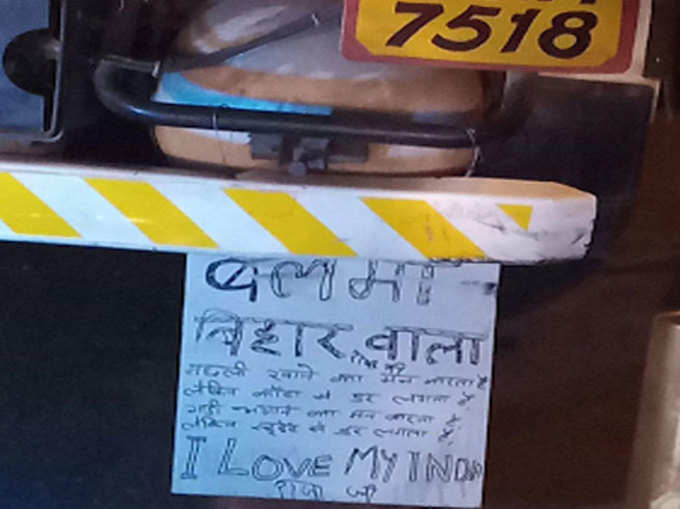 7518
बलमा
बिहार वाला
मछली खाने का मन करता है
लेकिन काँटा से डर लगता है
गाड़ी भगाने का मन करता है
लेकिन से डर लगता है
I LOVE MY INDIA
राजा जी